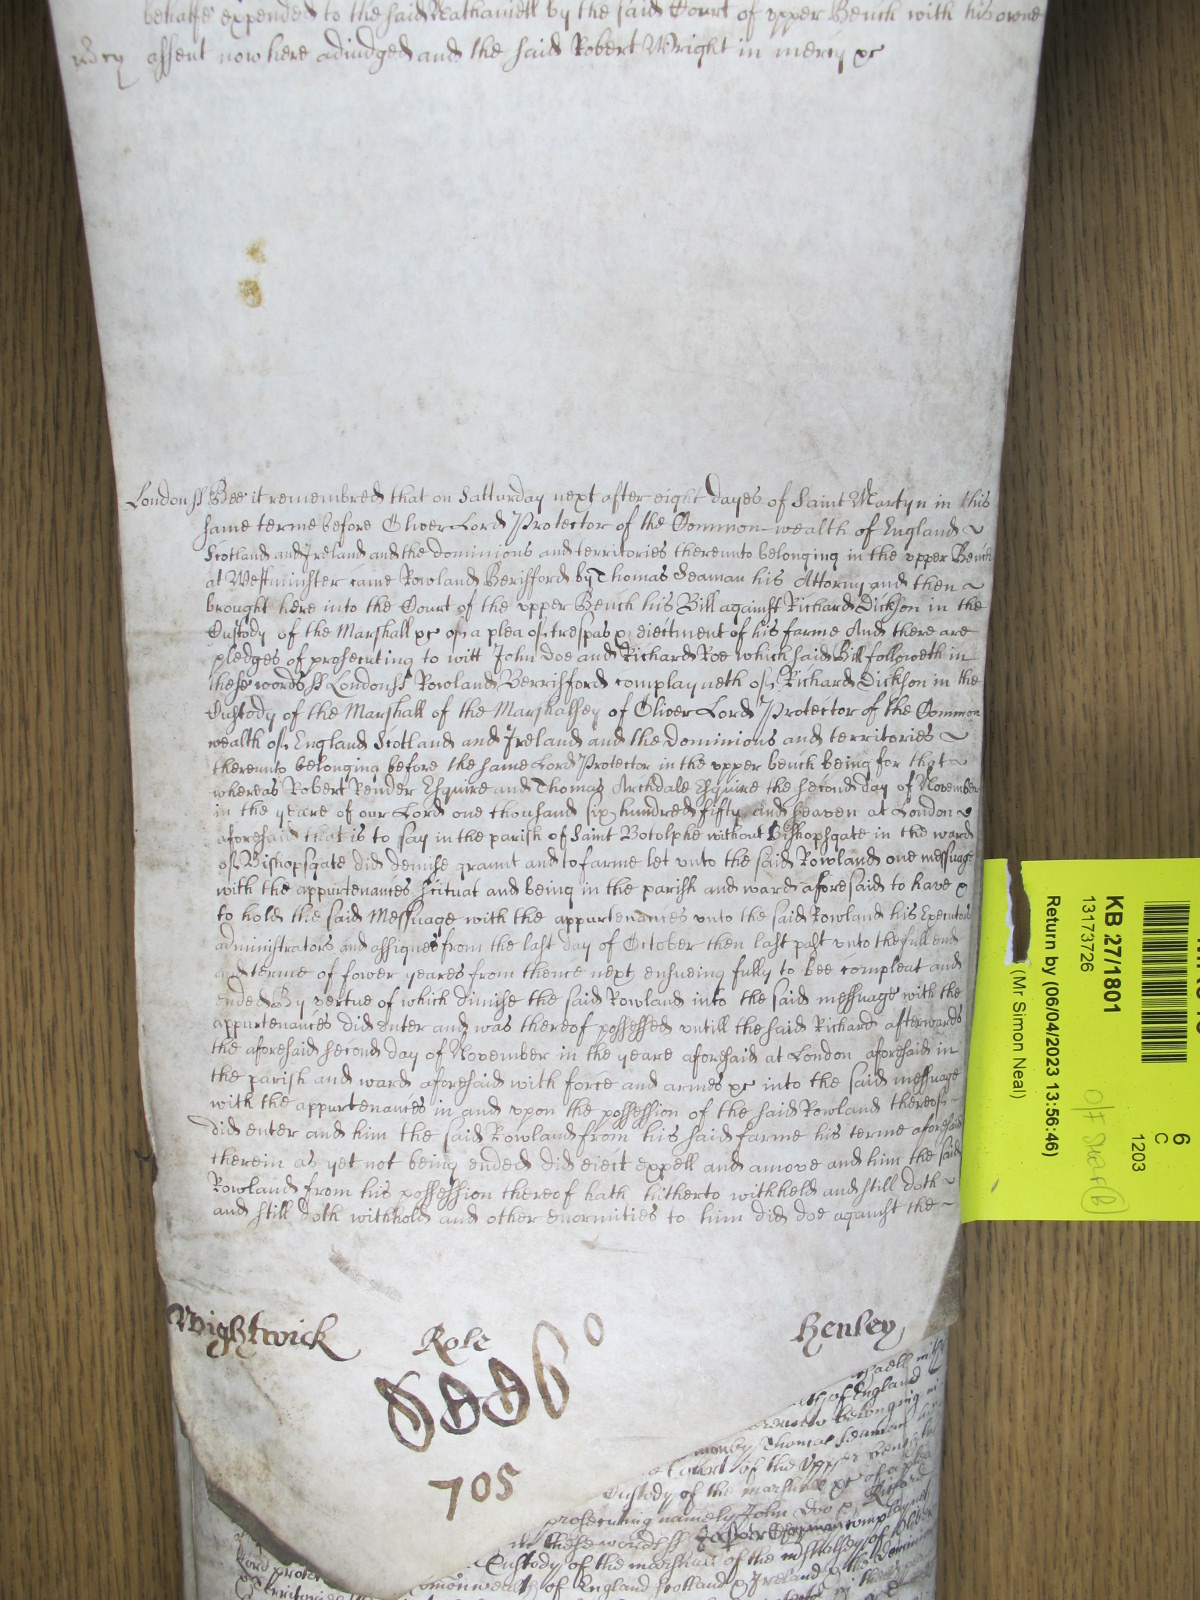 behalfe expended to the said Nathaniell by the said Court of vpper Bench with his owne
assent now here adiudged and the said Robert Wright in mercy &c
London ss Bee it remembred that on Satturday next after eight dayes of Saint Martyn in this
same terme before Oliver Lord Protector of the Common-wealth of England
Scotland and Ireland and the dominions and territories thereunto belonging in the vpper Bench
at Westminster came Rowland Berisford by Thomas Seaman his Attorny and then
brought here into the Court of the vpper Bench his Bill against Richard Dickson in the
Custody of the Marshall &c of a plea of trespas & eiectment of his farme And there are
pledges of prosecuting to witt John Doe and Richard Roe which said Bill followeth in
these words ss London ss Rowland Berrisford complayneth of Richard Dickson in the
Custody of the Marshall of the Marshalsey of Oliver Lord Protector of the Common
wealth of England Scotland and Ireland and the dominions and territories
thereunto belonging before the same Lord Protector in the vpper bench being for that
whereas Robert Render Esquire and Thomas Archdale Esquire the second day of November
in the yeare of our Lord one thousand six hundred fifty and seaven at London
aforesaid that is to say in the parish of Saint Botolphe without Bishopsgate in the ward
of Bishopsgate did demise graunt and to farme let vnto the said Rowland one messuage
with the appurtenances scituat and being in the parish and ward aforesaid to have &
to hold the said Messuage with the appurtenances vnto the said Rowland his Executors
administrators and assignes from the last day of October then last past vnto the full end
and terme of fower yeares from thence next ensueing fully to bee compleat and
ended By vertue of which dimise the said Rowland into the said messuage with the
appurtenances did enter and was thereof possessed vntill the said Richard afterwards
the aforesaid second day of November in the yeare aforesaid at London aforesaid in
the parish and ward aforesaid with force and armes &c into the said messuage
with the appurtenances in and vpon the possession of the said Rowland thereof
did enter and him the said Rowland from his said farme his terme aforesaid
therein as yet not being ended did eiect expell and amove and him the said
Rowland from his possession thereof hath hitherto withheld and still doth
and still doth withhold and other enormities to him did doe against the
Wightwick Role Henley
705
of England
belonging
Thomas Seaman
Court of the Vpper Bench
Custody of the marshall &c of a plea
prosecuting namely John Doo & Richard
in these words ss complayneth
Custody of the marshall of the marshalsey of Oliver
of England Scotland & Ireland & the dominions
KB 27/1801
13173726
Return by (06/04/2023 13:56:46)
(Mr Simon Neal)
6
C
1203